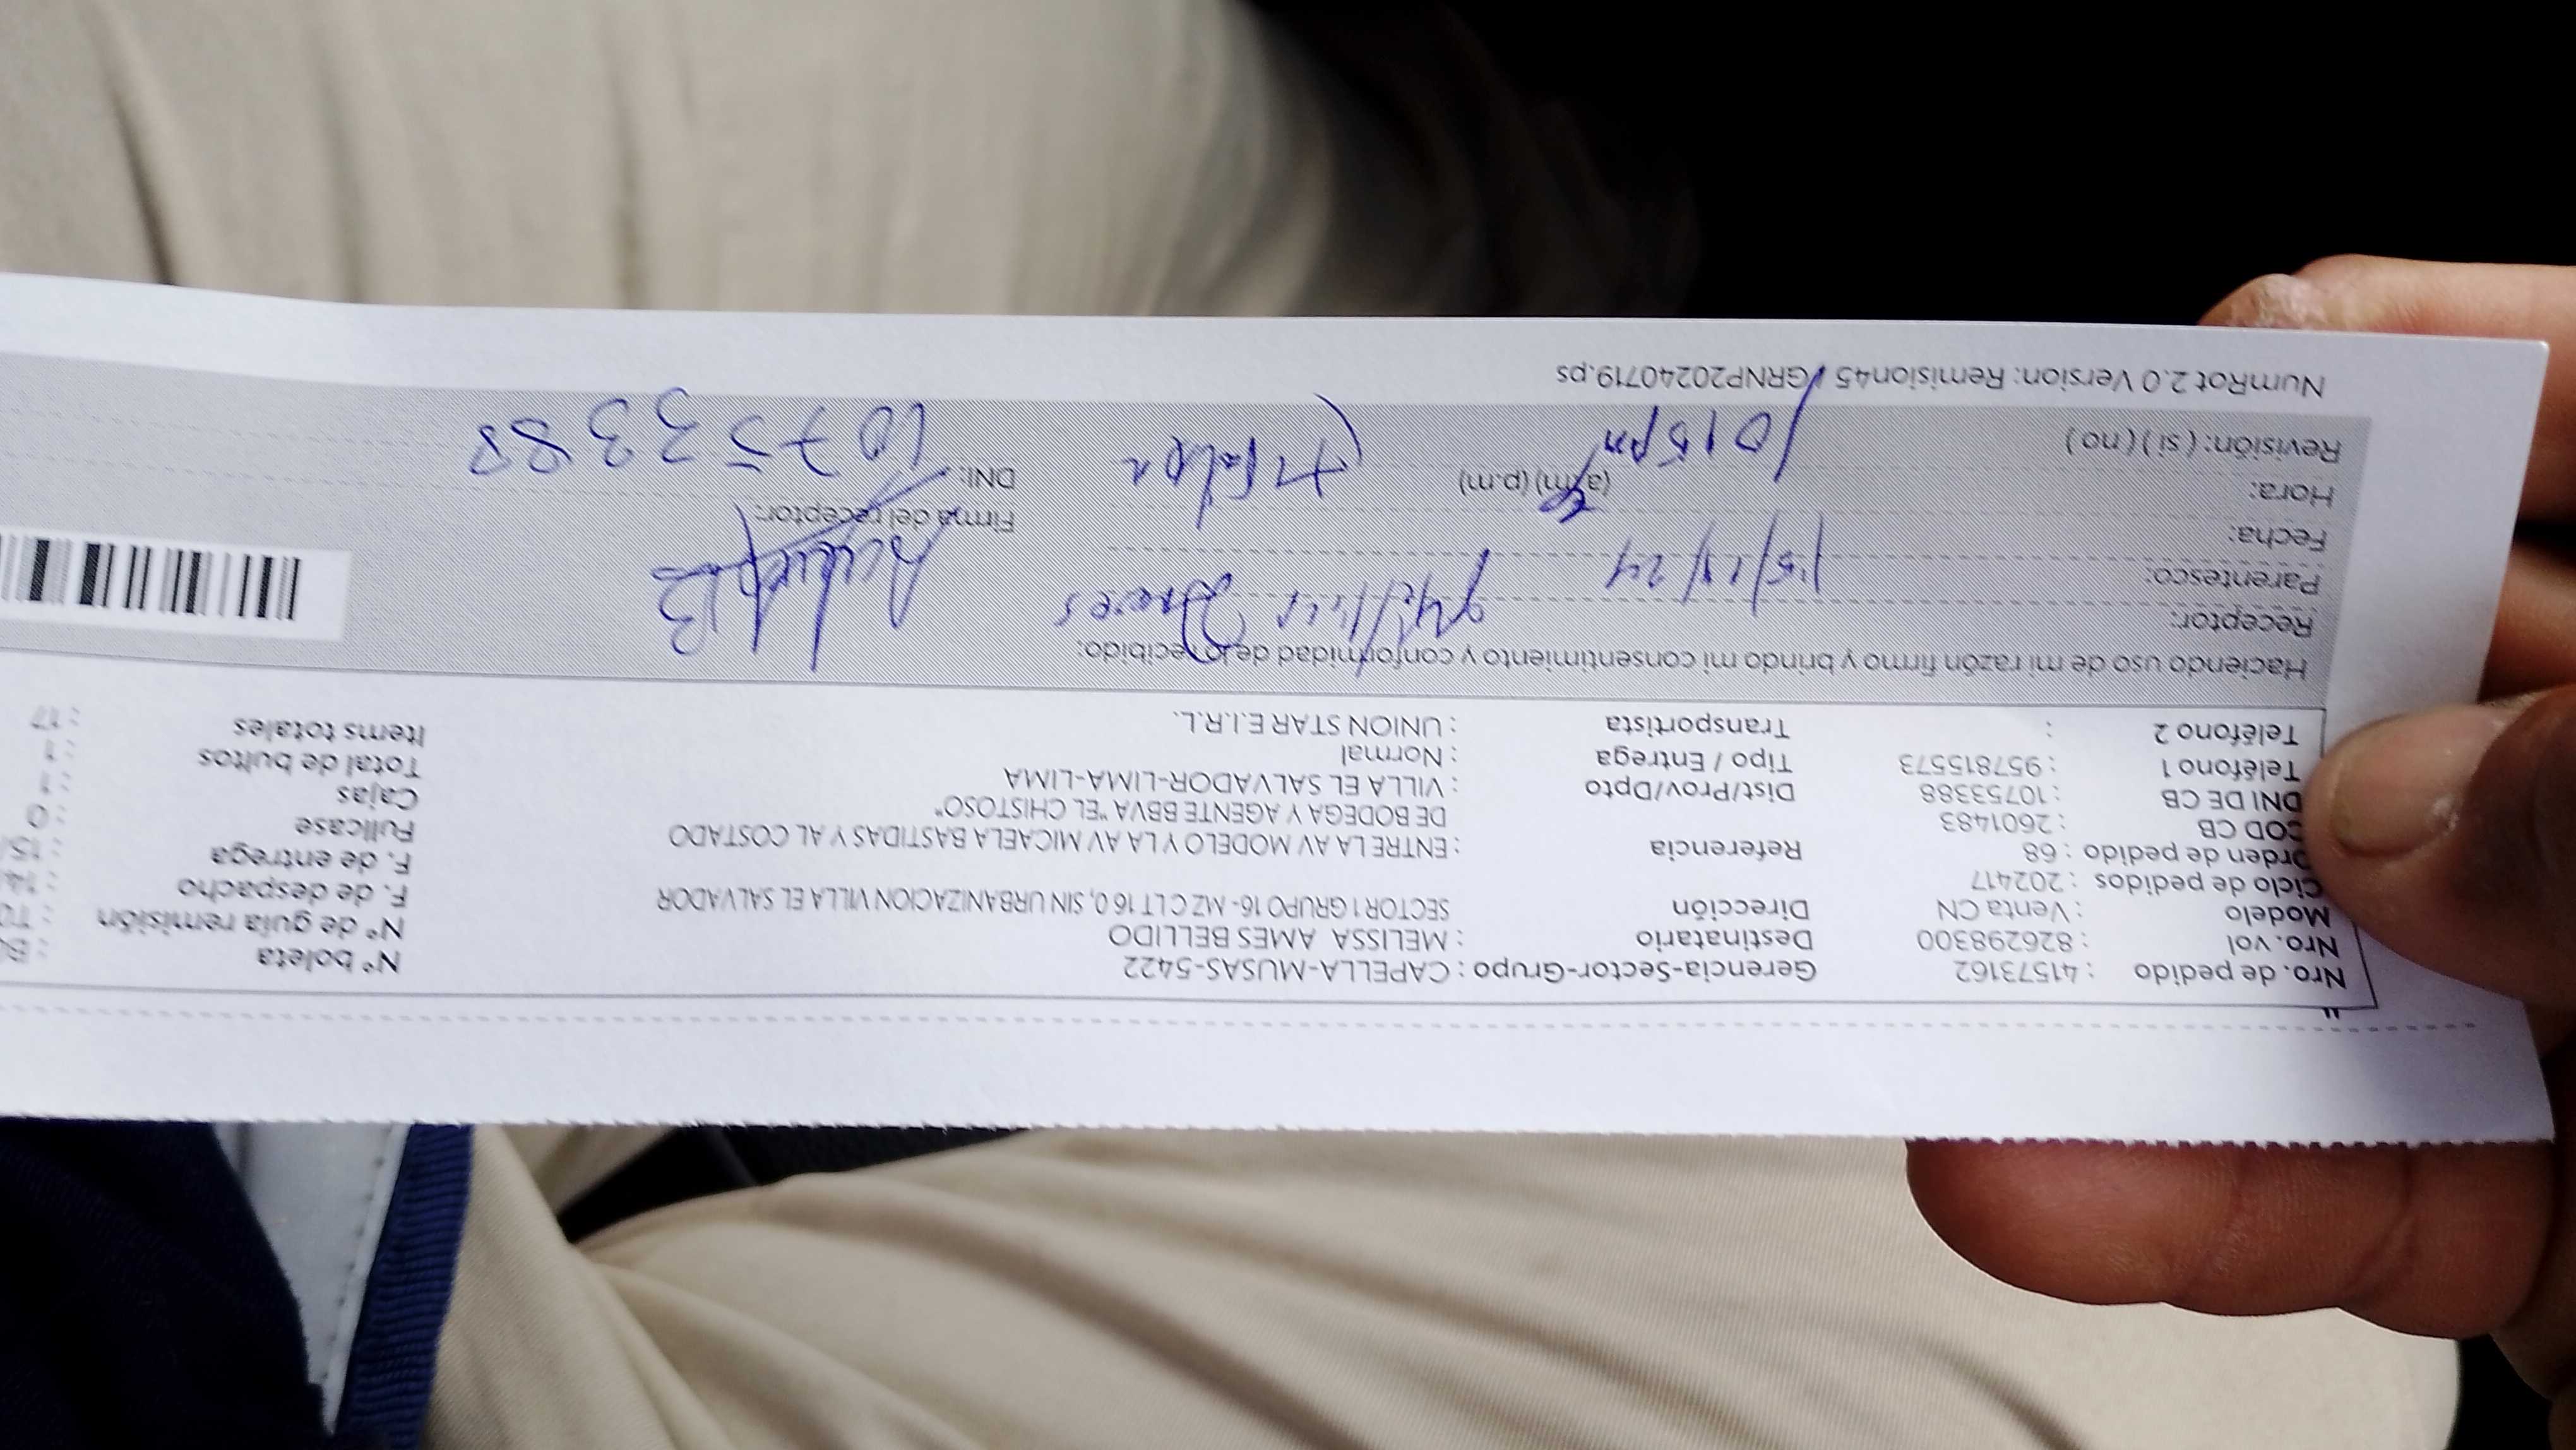 Nro. de pedido : 41573162 Gerencia-Sector-Grupo : CAPELLA-MUSAS-5422 N° boleta
Nro. vol : 826298300 Destinatario : MELISSA AMES BELLIDO N° de guía remisión
Modelo : Venta CN Dirección SECTOR 1 GRUPO 16- MZ C LT 16 0, SIN URBANIZACION VILLA EL SALVADOR F. de despacho : 14
Ciclo de pedidos : 202417 F. de entrega : 15/
Orden de pedido : 68 Referencia : ENTRE LA AV MODELO Y LA AV MICAELA BASTIDAS Y AL COSTADO Fullcase : 0
COD CB : 2601483 DE BODEGA Y AGENTE BBVA "EL CHISTOSO" Cajas : 1
DNI DE CB : 10753388 Dist/Prov/Dpto : VILLA EL SALVADOR-LIMA-LIMA Total de bultos : 1
Teléfono 1 : 957815573 Tipo / Entrega : Normal Items totales : 17
Teléfono 2 : Transportista : UNION STAR E.I.R.L.
Haciendo uso de mi razón firmo y brindo mi consentimiento y conformidad de lo recibido:
Receptor:
Parentesco:
Fecha: Firma del receptor:
Hora: (a.m) (p.m) DNI: 10753388
Revisión: (si) (no)
NumRot 2.0 Version: Remision45 / GRNP20240719.ps